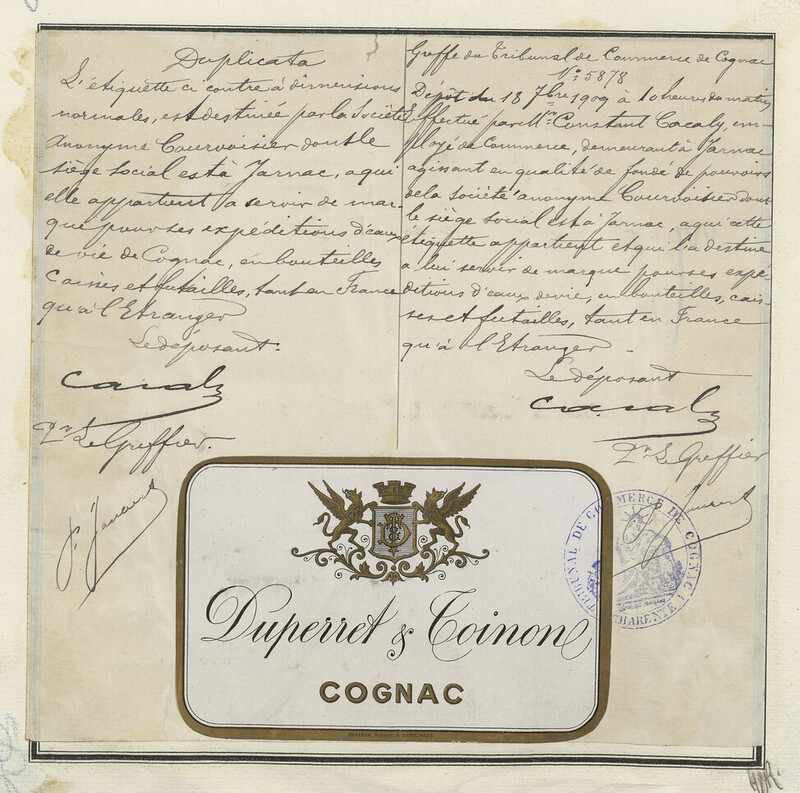 Duplicata
L'étiquette ci contre à dimensions
normales, est destinée par la Société
Anonyme Courvoisier dont le
siège social est à Jarnac, a qui
elle appartient a servir de mar-
que pour ses expéditions d'eaux
de vie de Cognac, en bouteilles
caisses et futailles, tant en France
qu'à l'Etranger
Le déposant.
Cacaly
Pr Le Greffier.
Greffe du Tribunal de Commerce de Cognac
No 5878
Dépôt du 18 7bre 1909 à 10 heures du matin
Effectué par Mr Constant Cacaly, em-
ployé de Commerce, demeurant à Jarnac
agissant en qualité de fondé de pouvoirs
de la Société anonyme Courvoisier dont
le siège social est à Jarnac, a qui cette
étiquette appartient et qui l'a destine
a lui servir de marque pour ses expé-
ditions d'eaux de vie, en bouteilles, cais-
ses et futailles, tant en France
qu'à l'Etranger.
Le déposant
Cacaly
Pr Le Greffier
TRIBUNAL DE COMMERCE DE COGNAC
CHARENTE
Duperret & Toinon
COGNAC